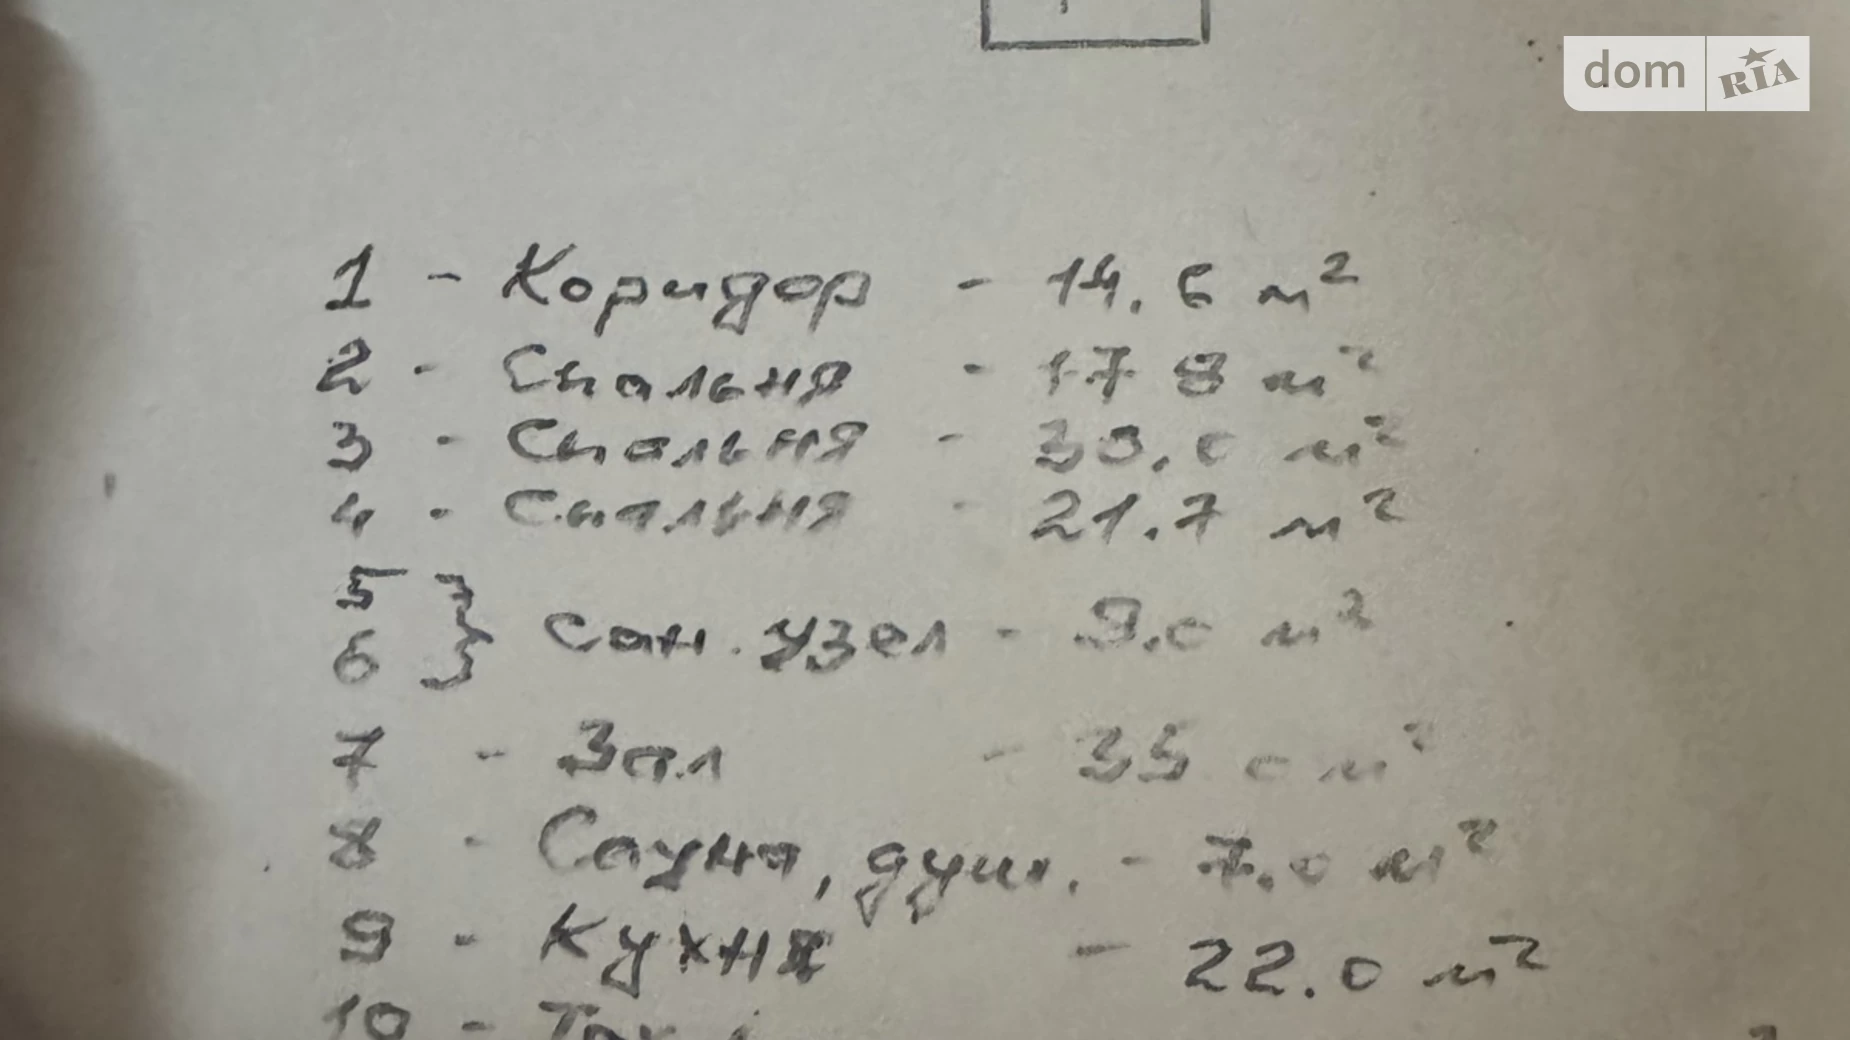 dom RIA
1 - Коридор - 14.6 м²
2 - Спальня - 17 8 м²
3 - Спальня - 30.0 м²
4 - Спальня - 21.7 м²
5
6 } Сан. узел - 9.0 м²
7 - Зал - 35 0 м²
8 - Сауна, душ. - 7.0 м²
9 - Кухня - 22.0 м²
10 -